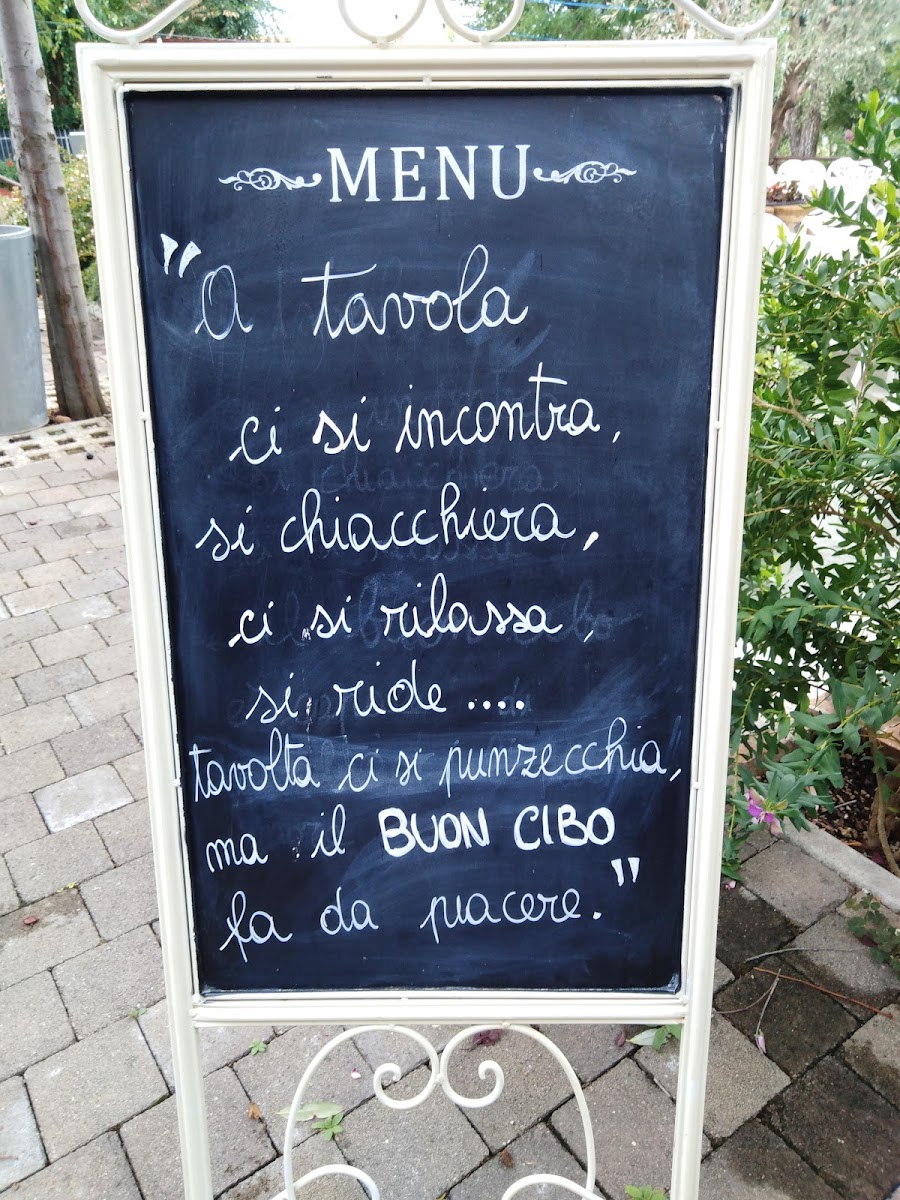 MENU
"A tavola
ci si incontra,
si chiacchiera,
ci si rilassa,
si ride....
tavolta ci si punzecchia,
ma il BUON CIBO
fa da piacere."